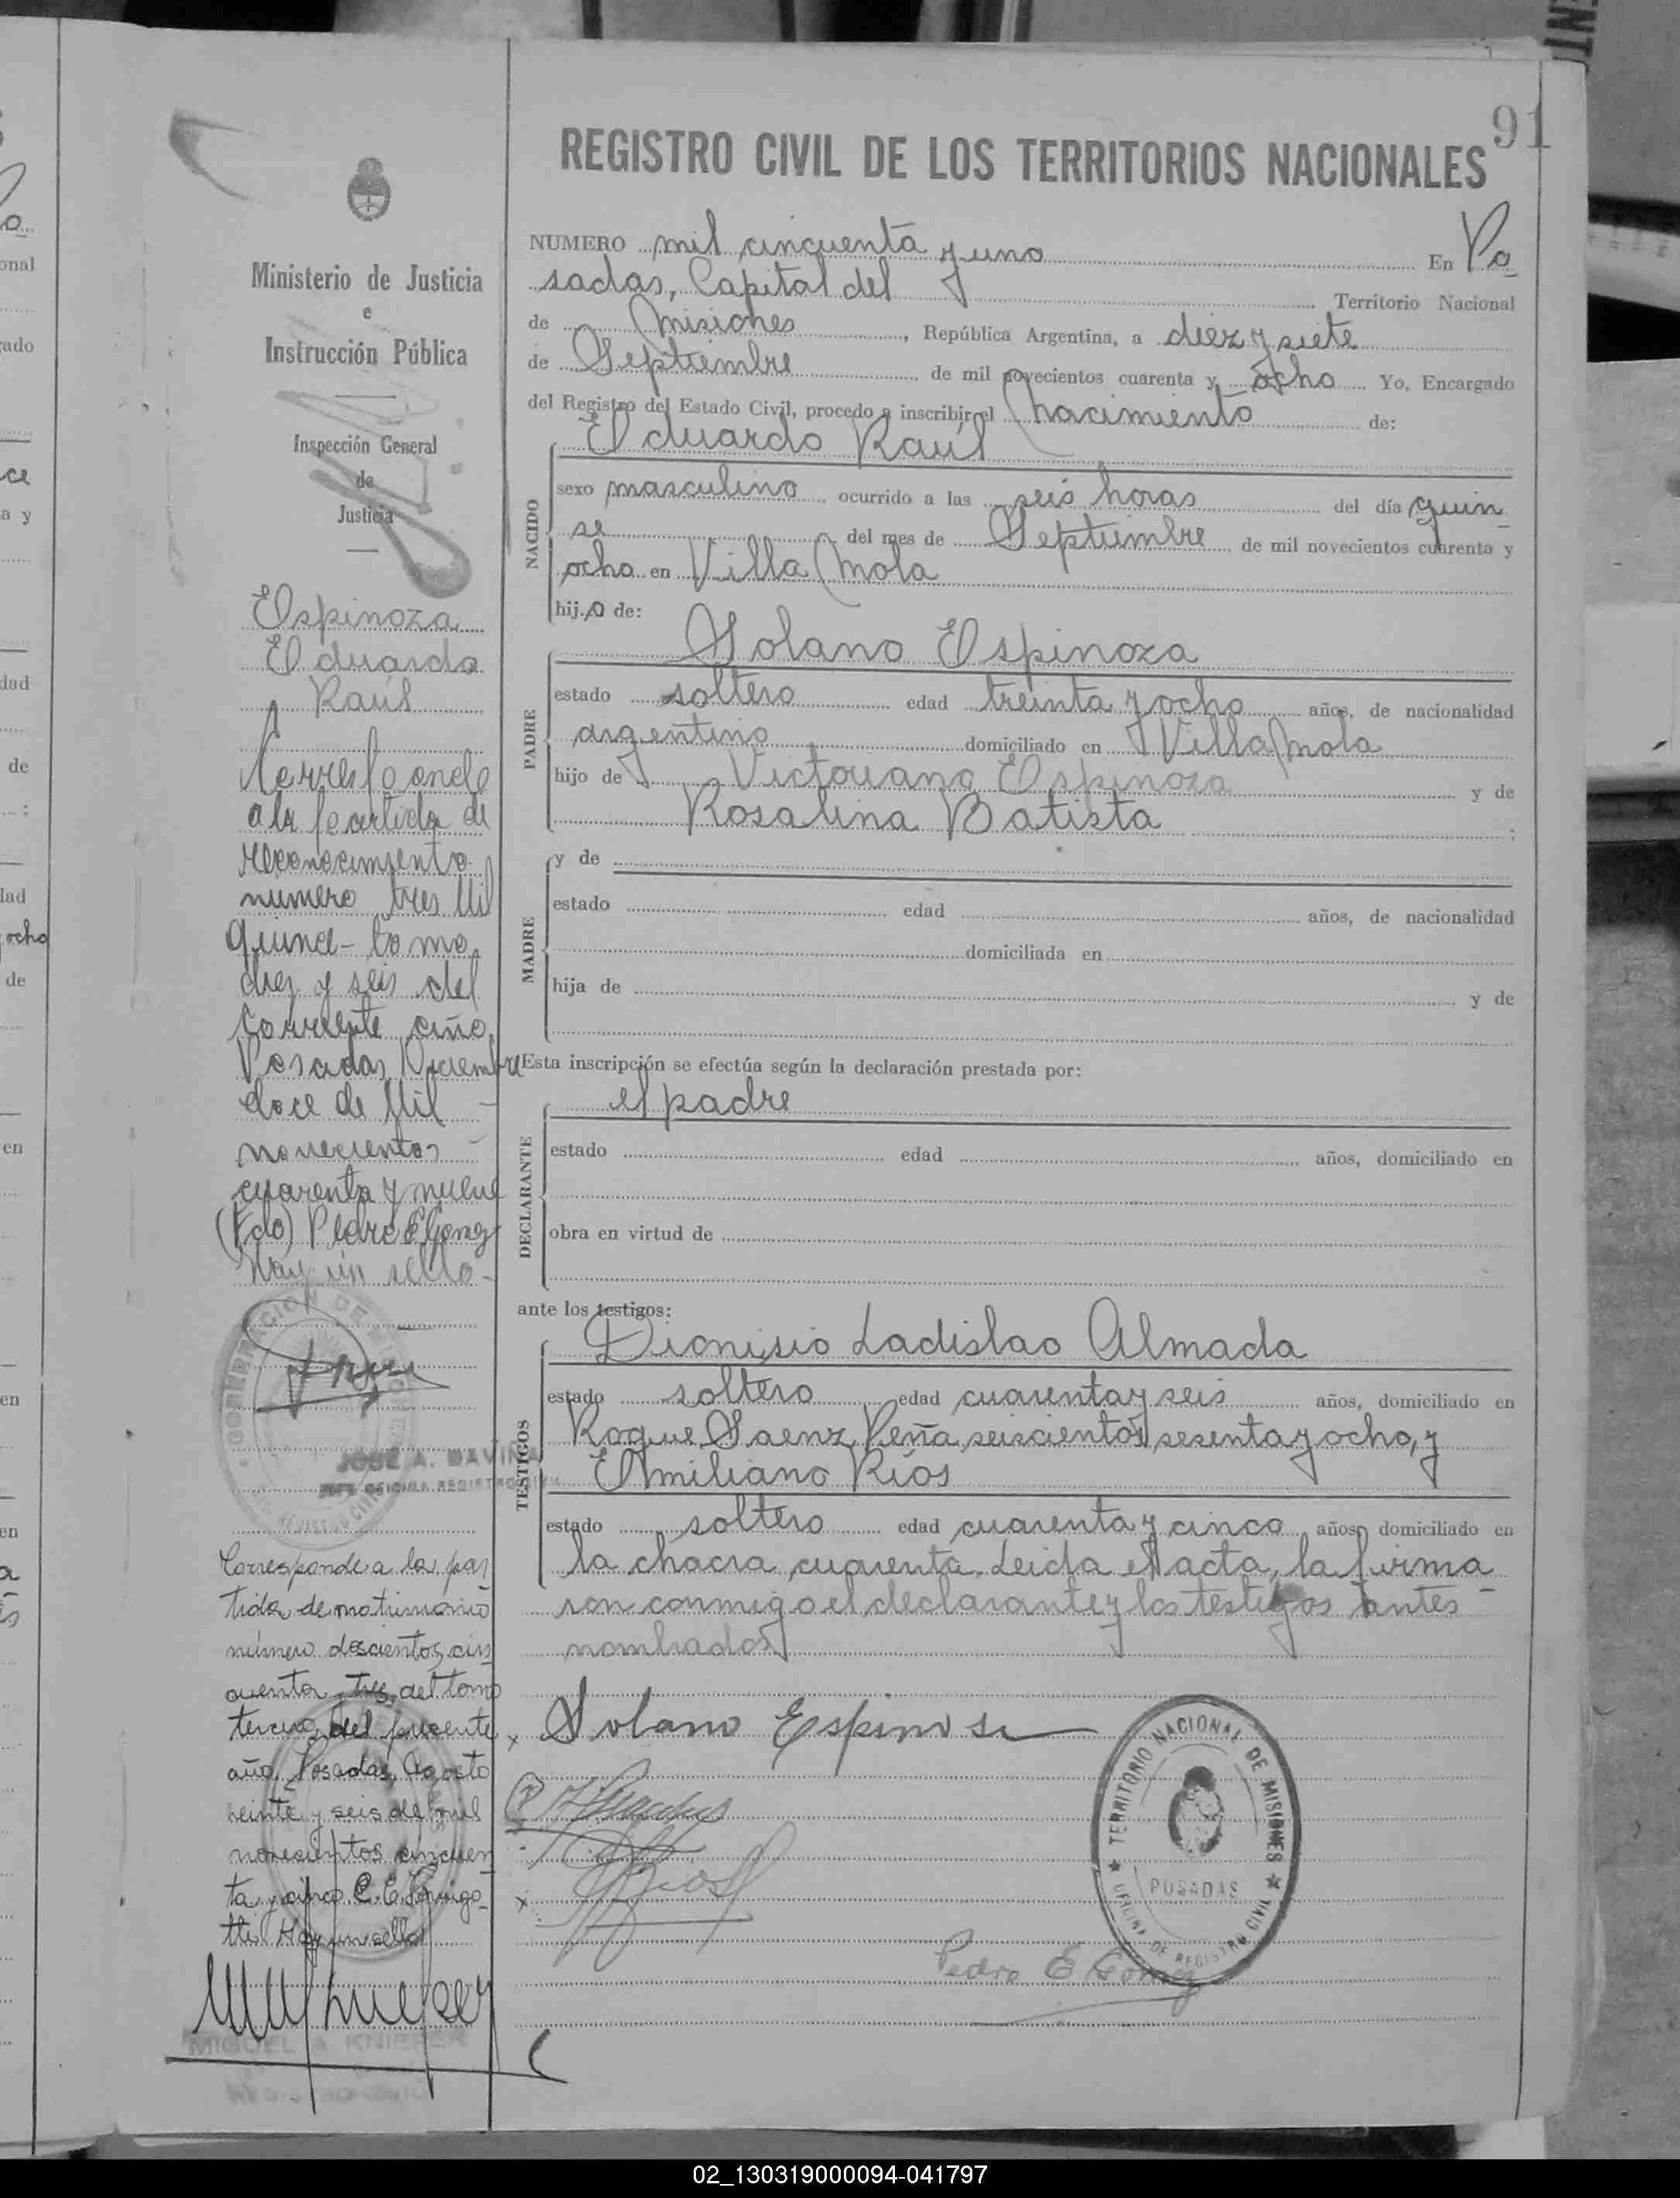 91
REGISTRO CIVIL DE LOS TERRITORIOS NACIONALES
Ministerio de Justicia
e
Instrucción Pública
Inspección General
de
Justicia
Espinoza
Eduardo
Raúl
Corresponde
a la partida de
reconocimiento
numero tres mil
quince - tomo
diez y seis del
corriente año.
Posadas, Diciembre
doce de mil
novecientos
cuarenta y nueve
(Fdo) Pedro E Gomez
Hay un sello -
JOSÉ A. DAVIÑA
JEFE OFICINA REGISTRO CIVIL
Corresponde a la par
tida de matrimonio
número doscientos cin
cuenta y tres, del tomo
tercero del presente
año, Posadas, Agosto
veinte y seis de mil
novecientos cincuen
ta y cinco C. E.
Hay un sello
MIGUEL A KNIEPER
NUMERO mil cincuenta y uno En Po
sadas, Capital del Territorio Nacional
de Misiones, República Argentina, a diez y siete
de Septiembre de mil novecientos cuarenta y ocho Yo, Encargado
del Registro del Estado Civil, procedo a inscribir el nacimiento de:
Eduardo Raúl
NACIDO
sexo masculino ocurrido a las seis horas del día quin
se del mes de Septiembre, de mil novecientos cuarenta y
ocho en Villa Mola
hijo de:
Solano Espinoza
PADRE
estado soltero edad treinta y ocho años, de nacionalidad
argentino domiciliado en Villa Mola
hijo de Victoriano Espinoza y de
Rosalina Batista ;
MADRE
y de
estado edad años, de nacionalidad
domiciliada en
hija de y de
Esta inscripción se efectúa según la declaración prestada por:
el padre
DECLARANTE
estado edad años, domiciliado en
obra en virtud de
ante los testigos:
Dionisio Ladislao Almada
TESTIGOS
estado soltero edad cuarenta y seis años, domiciliado en
Roque Saenz Peña seiscientos sesenta y ocho, y
Emiliano Ríos
estado soltero edad cuarenta y cinco años, domiciliado en
la chacra cuarenta. Leida el acta, la firma
ron conmigo el declarante y los testigos antes
nombrados
Solano Espinosa
Pedro E Gomez
TERRITORIO NACIONAL DE MISIONES
POSADAS
OFICINA DE REGISTRO CIVIL
02_130319000094-041797